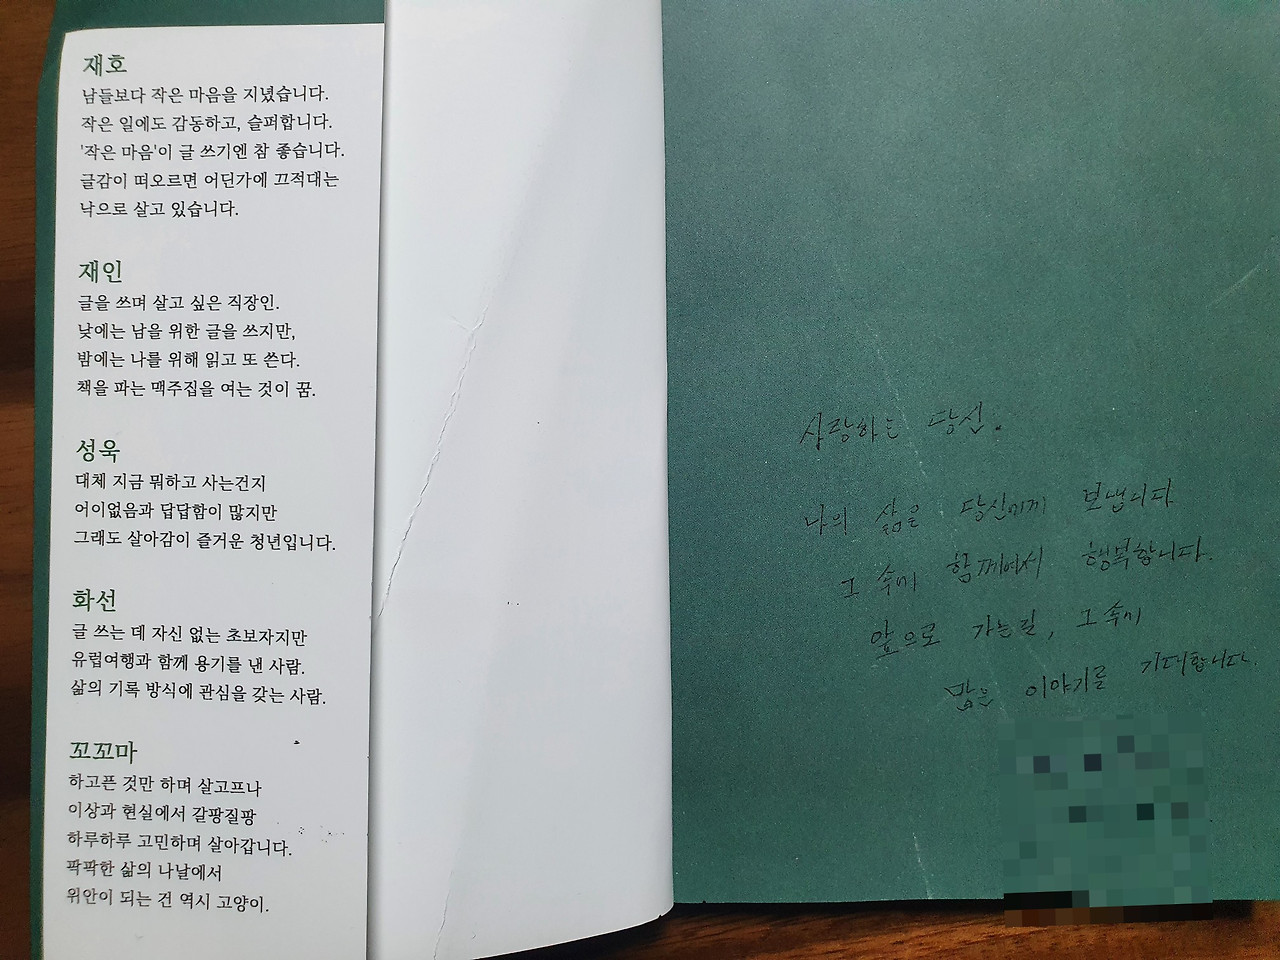 재호
남들보다 작은 마음을 지녔습니다.
작은 일에도 감동하고, 슬퍼합니다.
'작은 마음'이 글 쓰기엔 참 좋습니다.
글감이 떠오르면 어딘가에 끄적대는
낙으로 살고 있습니다.
재인
글을 쓰며 살고 싶은 직장인.
낮에는 남을 위한 글을 쓰지만,
밤에는 나를 위해 읽고 또 쓴다.
책을 파는 맥주집을 여는 것이 꿈.
성욱
대체 지금 뭐하고 사는건지
어이없음과 답답함이 많지만
그래도 살아감이 즐거운 청년입니다.
화선
글 쓰는 데 자신 없는 초보자지만
유럽여행과 함께 용기를 낸 사람.
삶의 기록 방식에 관심을 갖는 사람.
꼬꼬마
하고픈 것만 하며 살고프나
이상과 현실에서 갈팡질팡
하루하루 고민하며 살아갑니다.
팍팍한 삶의 나날에서
위안이 되는 건 역시 고양이.
사랑하는 당신.
나의 삶을 당신에게 보냅니다
그 속에 함께여서 행복합니다.
앞으로 가는길, 그 속에
많은 이야기를 기대합니다.